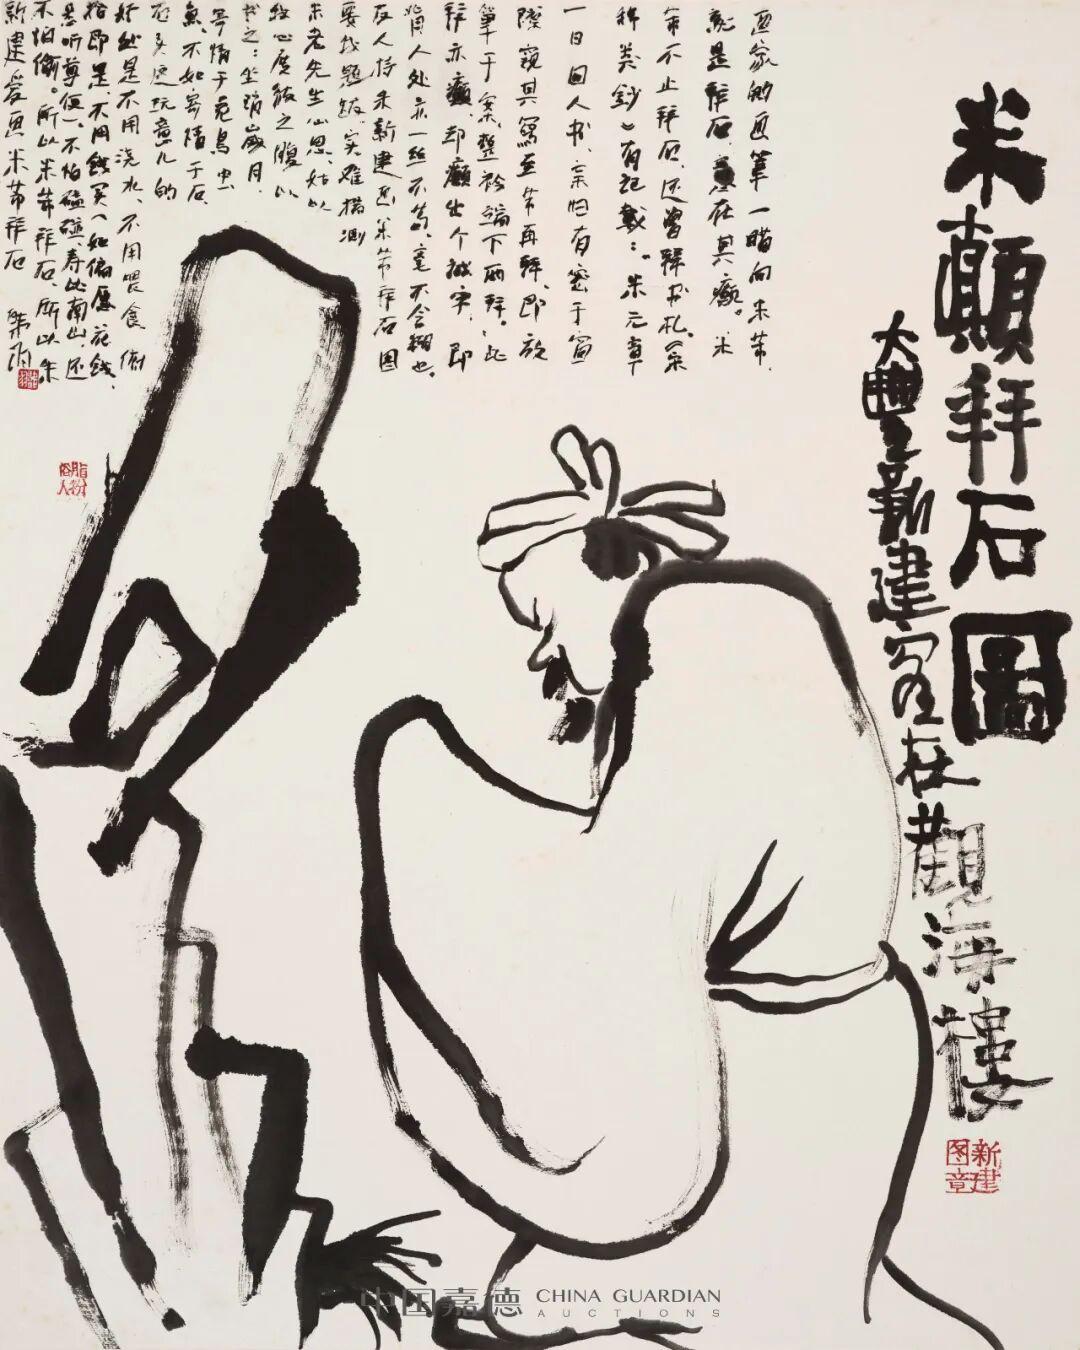 米顛拜石圖
大豐新建在觀海樓
新建图章
画家的画笔一瞄向米芾,
就是拜石,意在其癫。米
芾不止拜石,还曾拜书札。《宋
稗类钞》有记载:“米元章
一日回人书,亲旧有密于窗
隙窥其写至芾再拜,即放
笔于案,整衿端下两拜。”此
拜亦癫,却癫出个诚字,即
背人处亦一丝不苟,毫不含糊也。
友人持朱新建画米芾拜石图
要我题跋,实难揣测
朱老先生心思,姑以
我心度彼之腹,以
书之:坐销岁月,
寄情于花鸟虫
鱼,不如寄情于石。
石头这玩意儿的
好处是不用浇水,不用喂食,俯
拾即是,不用钱买(如偏愿花钱,
悉听尊便),不怕磕碰,寿比南山,还
不怕偷。所以米芾拜石,所以朱
新建爱画米芾拜石
中国嘉德 CHINA GUARDIAN
AUCTIONS